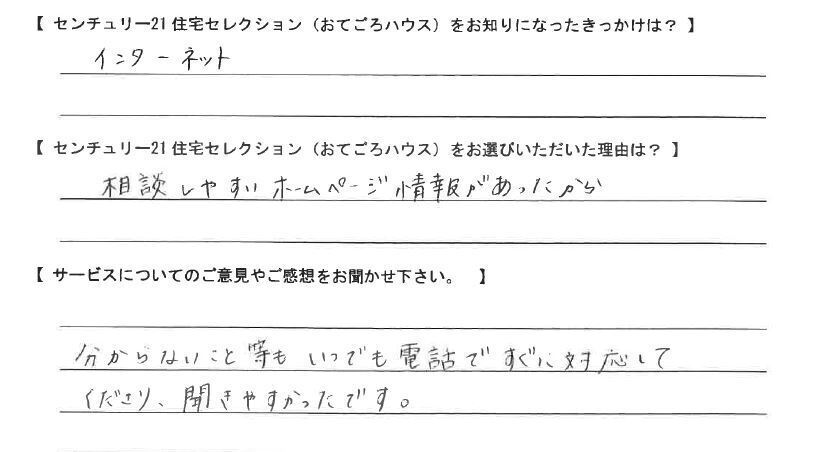 【 センチュリー21住宅セレクション（おてごろハウス）をお知りになったきっかけは？ 】
インターネット
【 センチュリー21住宅セレクション（おてごろハウス）をお選びいただいた理由は？ 】
相談しやすいホームページ情報があったから
【 サービスについてのご意見やご感想をお聞かせ下さい。 】
分からないこと等もいつでも電話ですぐに対応して
くださり、聞きやすかったです。